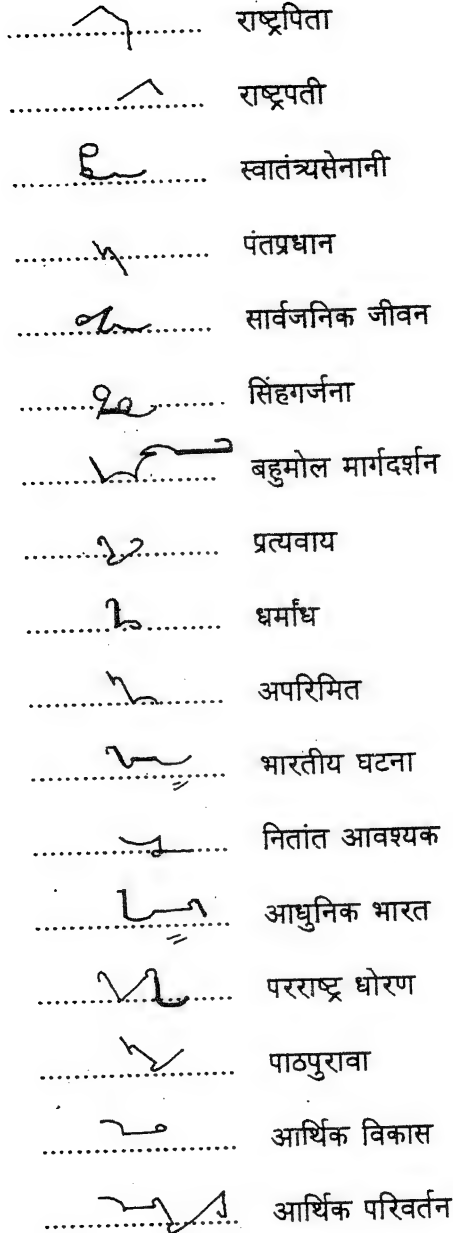 राष्ट्रपिता
राष्ट्रपती
स्वातंत्र्यसेनानी
पंतप्रधान
सार्वजनिक जीवन
सिंहगर्जना
बहुमोल मार्गदर्शन
प्रत्यवाय
धर्मांध
अपरिमित
भारतीय घटना
नितांत आवश्यक
आधुनिक भारत
परराष्ट्र धोरण
पाठपुरावा
आर्थिक विकास
आर्थिक परिवर्तन